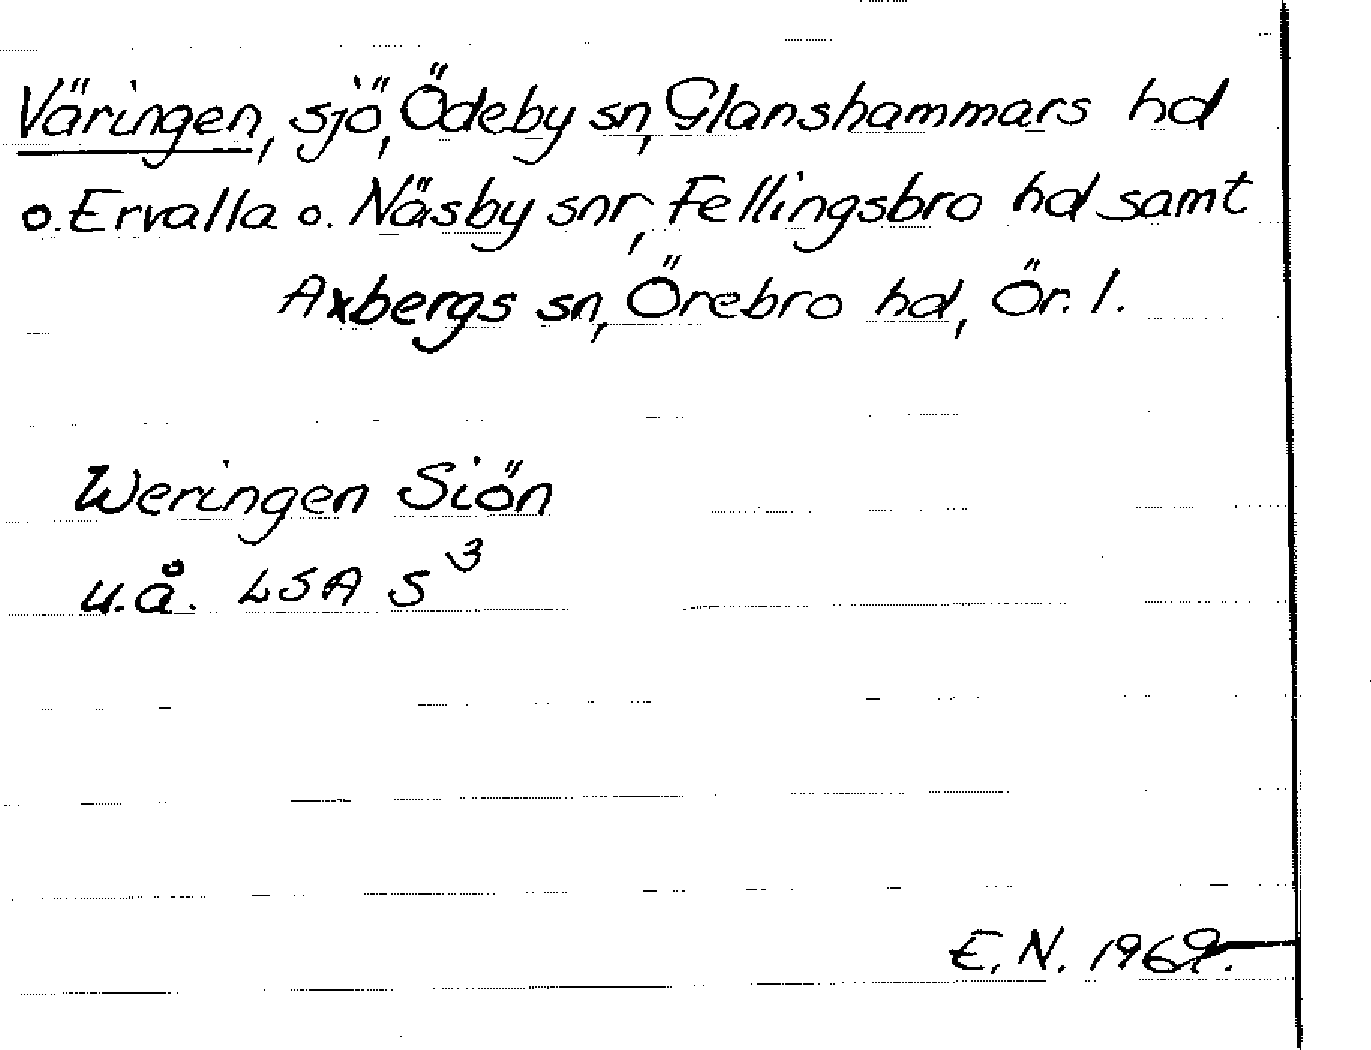 Väringen, sjö, Ödeby sn, Glanshammars hd
o. Ervalla o. Näsby snr, Fellingsbro hd samt
Axbergs sn, Örebro hd, Ör. l.
Weringen Siön
u.å. LSA S³
E. N. 1969.